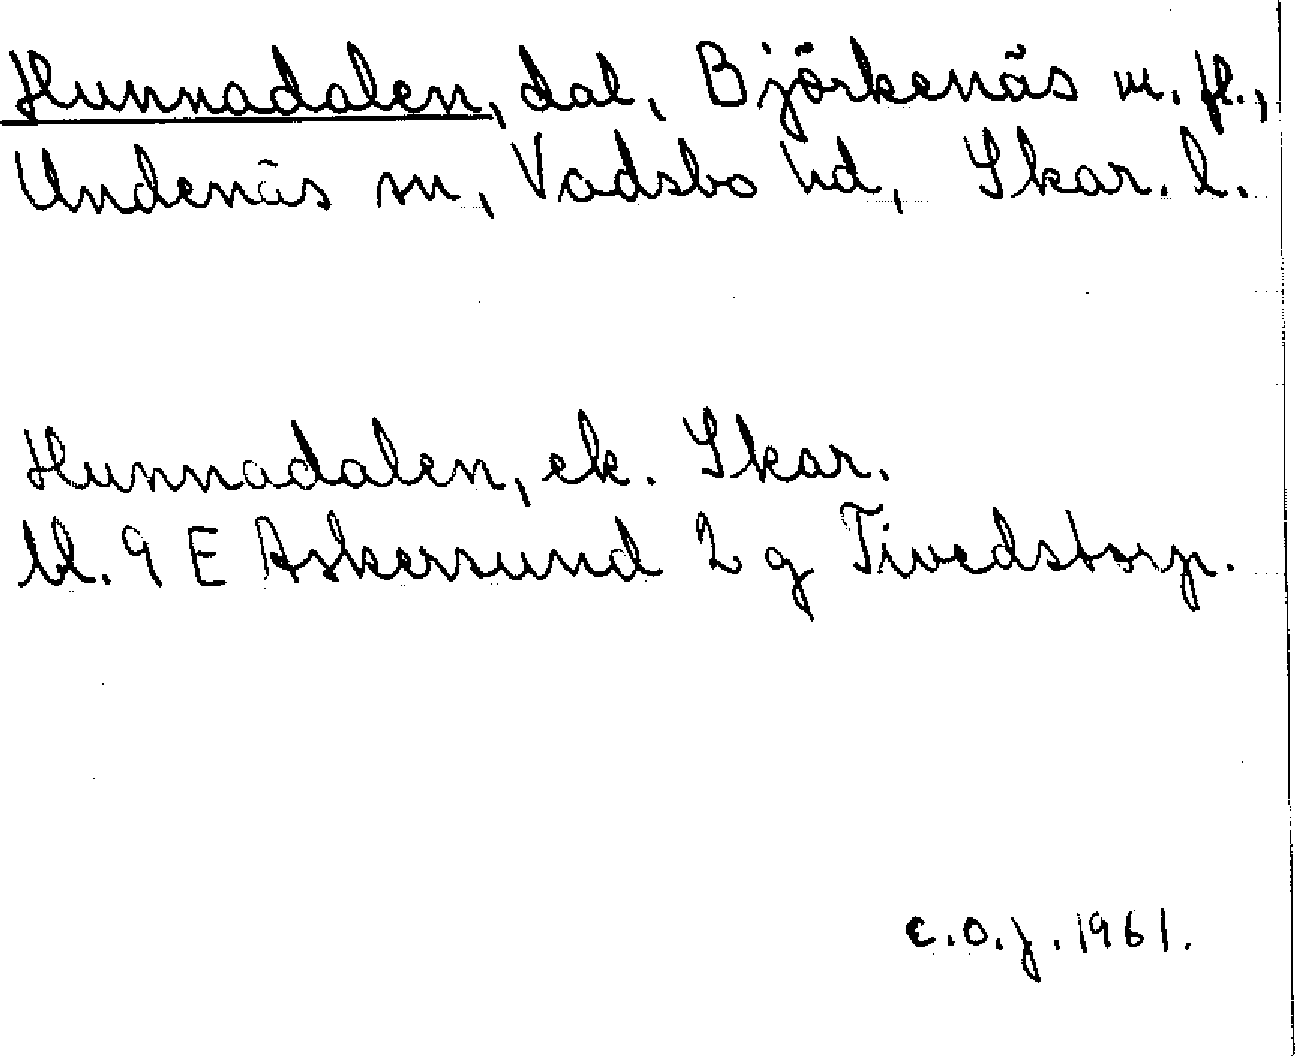 Hunnadalen, dal, Björkenäs m. fl.,
Undenäs sn, Vadsbo hd, Skar. l.
Hunnadalen, ek. Skar.
bl. 9 E Askersund 2 g Tivedstorp.
C.O.J. 1961.